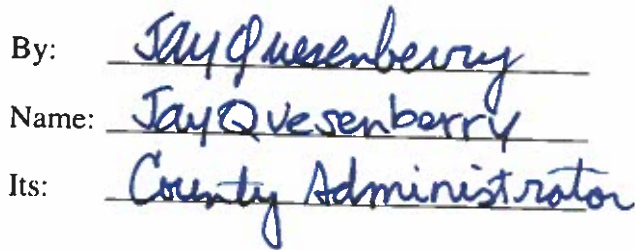 By: Jay Quesenberry
Name: Jay Quesenberry
Its: County Administrator